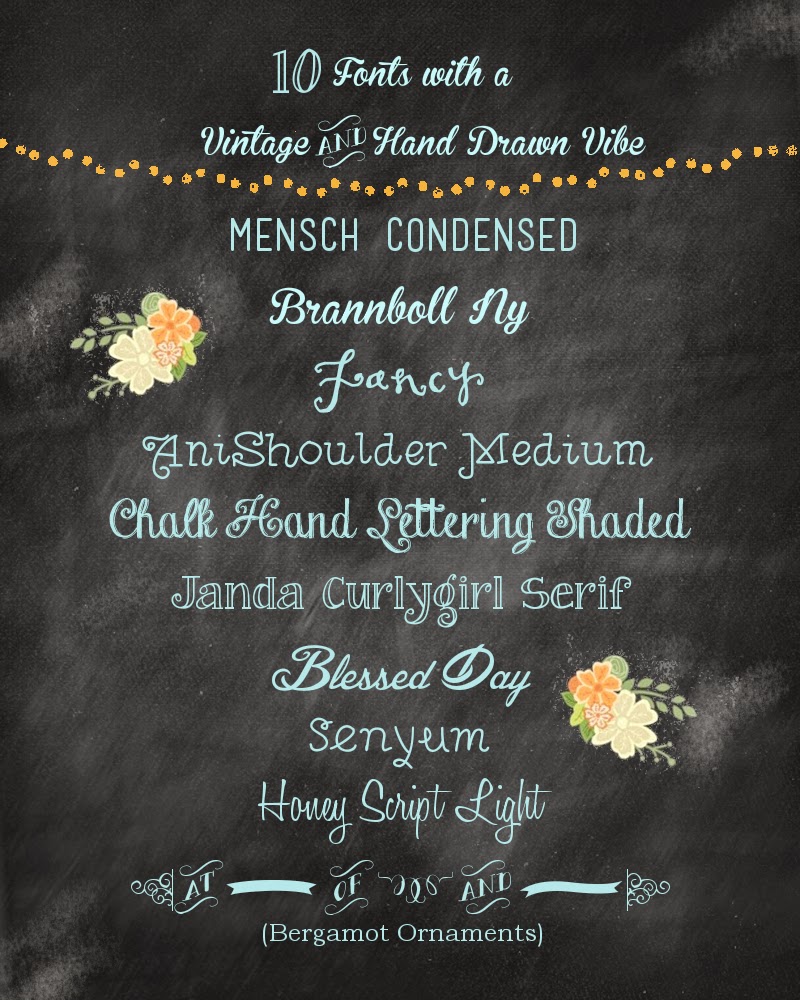 10 Fonts with a
Vintage AND Hand Drawn Vibe
MENSCH CONDENSED
Brannboll Ny
Fancy
AniShoulder Medium
Chalk Hand Lettering Shaded
Janda Curlygirl Serif
Blessed Day
Senyum
Honey Script Light
AT OF AND
(Bergamot Ornaments)